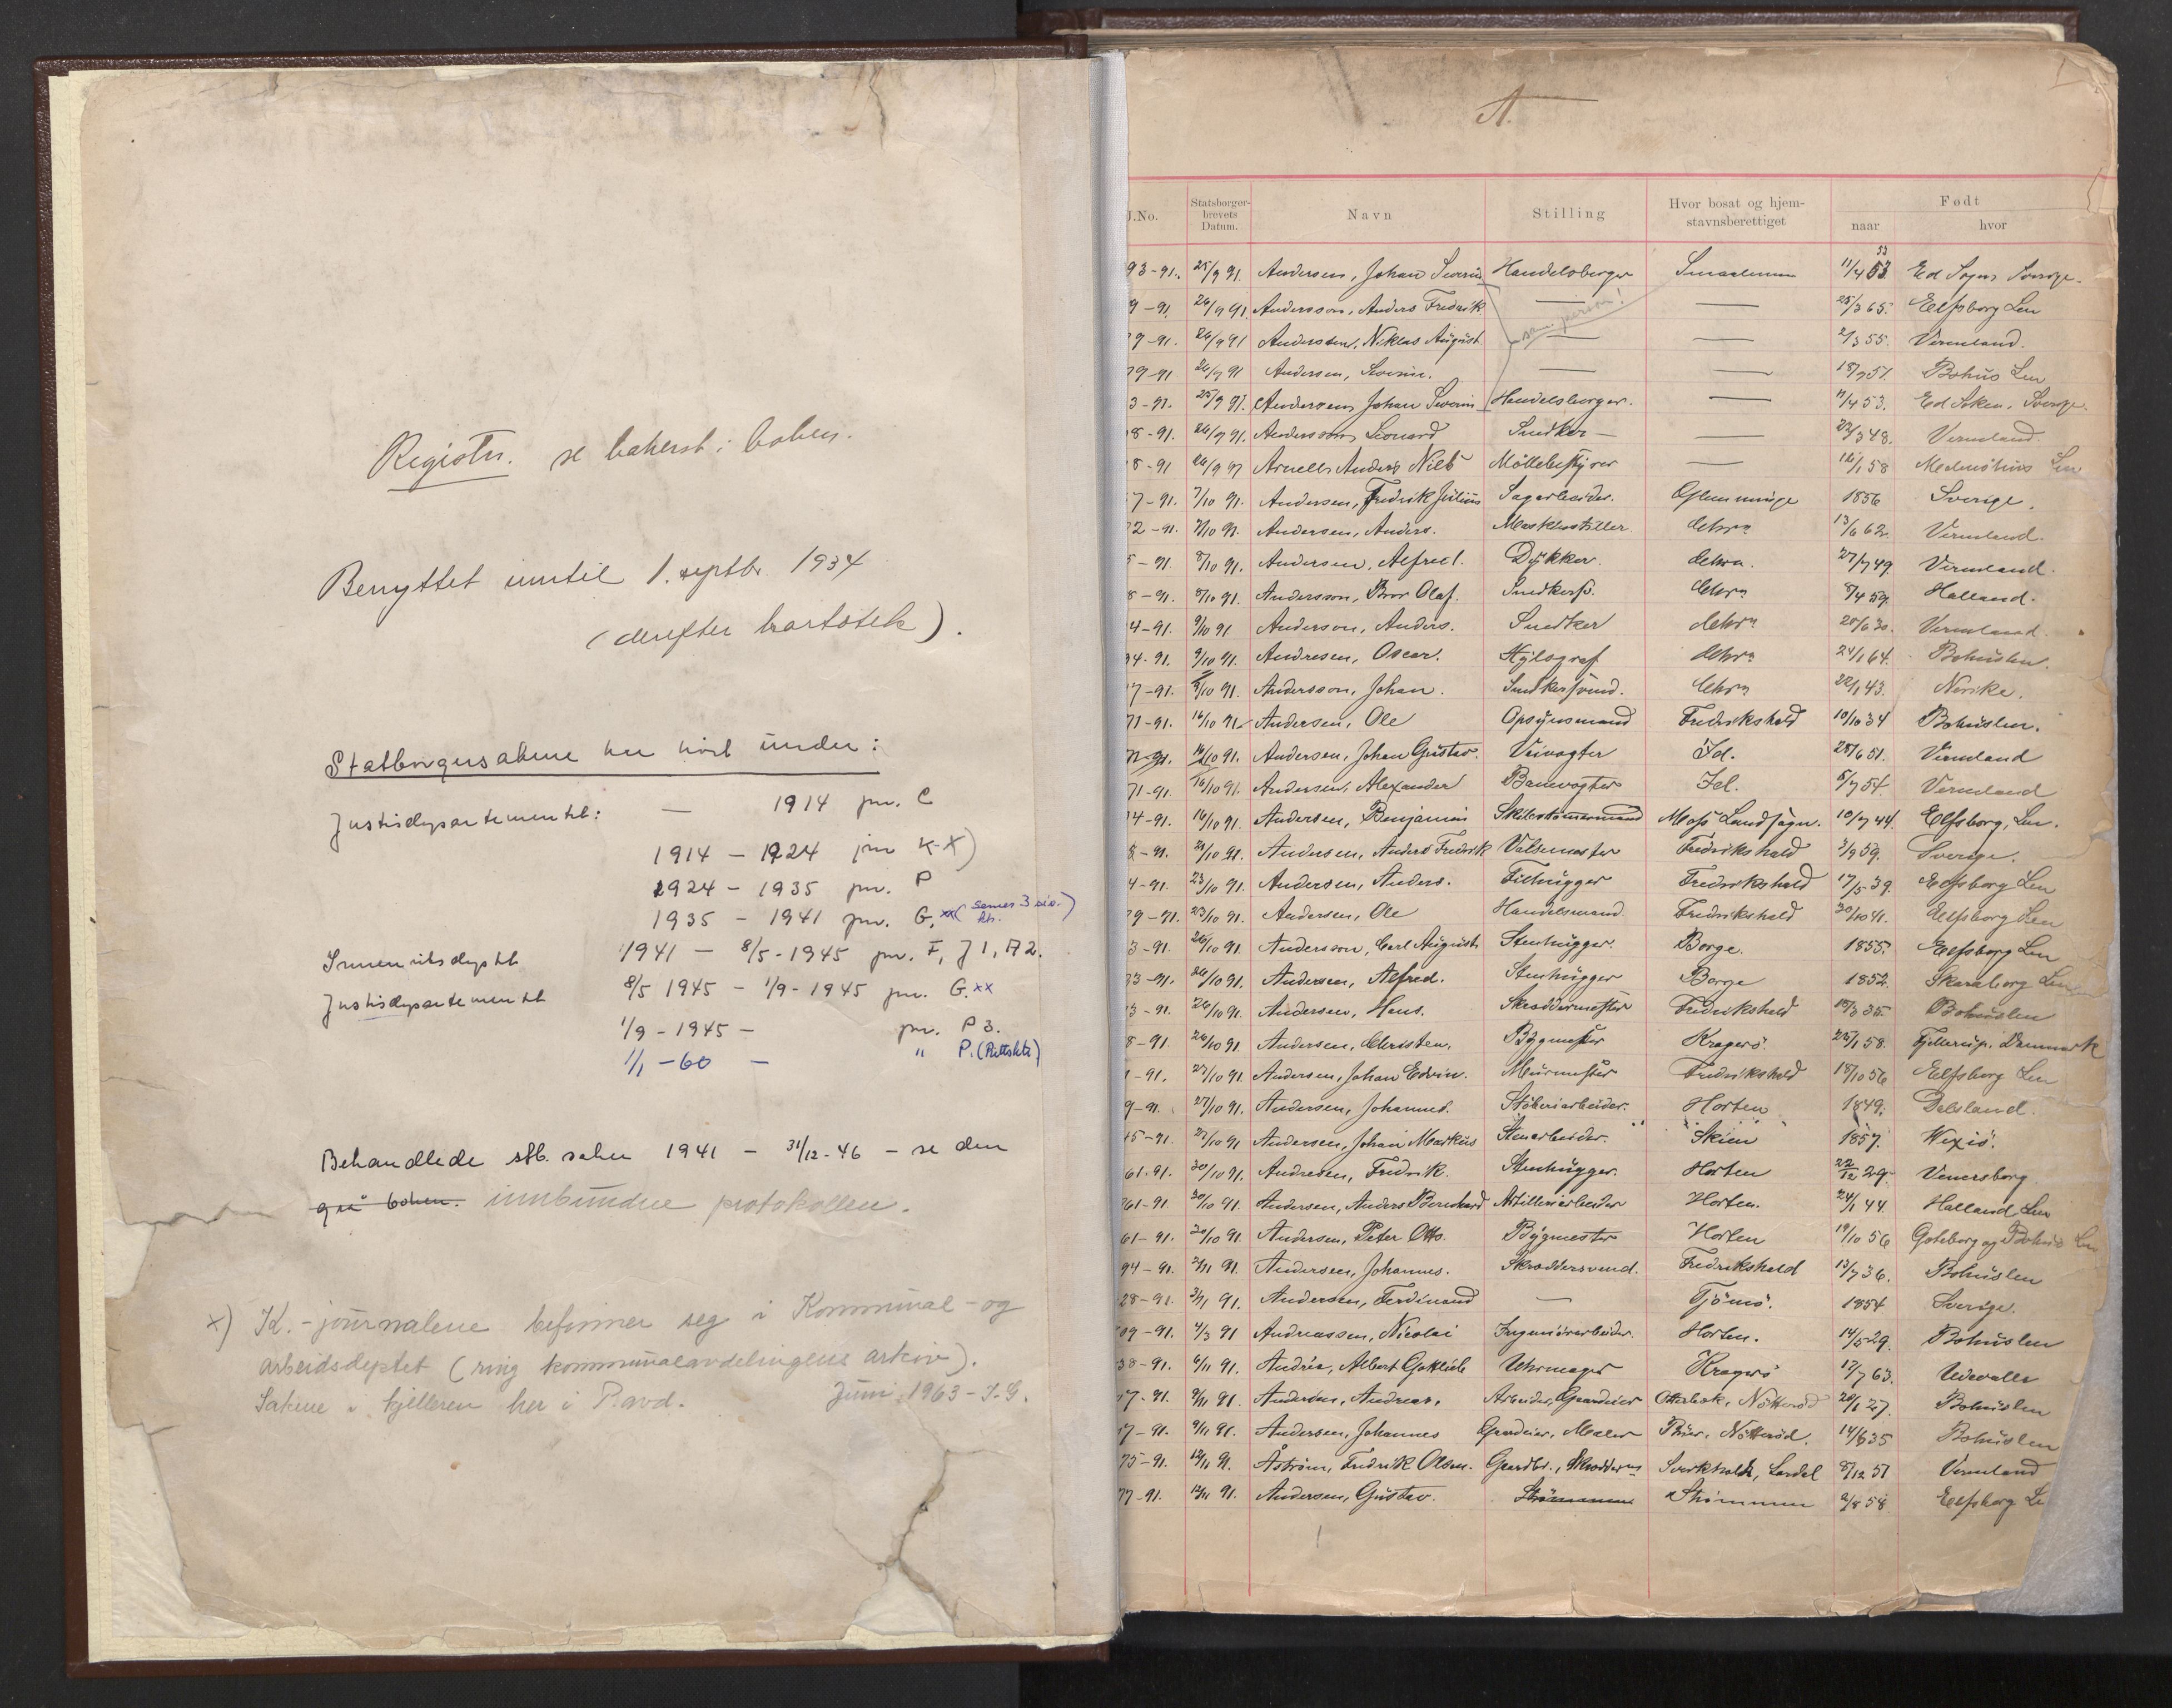 Registr. se bakerst i boken.
Benyttet inntil 1. septbr. 1934
(derefter kartotek).
Statborgersakene har hørt under:
Justisdepartementet: — 1914 jnr. C
1914 – 1924 jnr K-X)
1924 – 1935 jnr. P
1935 – 1941 jnr. G. xx (senere 3 siv. kt.)
Innenriksdeptet 1941 – 8/5 - 1945 jnr. F, J 1, A 2.
Justisdepartementet 8/5 1945 – 1/9 - 1945 jnr. G. xx
1/9 - 1945 – jnr. P 3.
1/1 - 60 — " P.
Behandlede stb. saker 1941 – 31/12 - 46 – se den
grå boken. innbundne protokollen.
x) K.-journalene befinner seg i Kommunal- og
arbeidsdeptet (ring kommunalavdelingens arkiv).
Sakene i kjelleren her i P.avd. Juni 1963 - I.G.
A.
J.No. Statsborgerbrevets Datum. Navn Stilling Hvor bosat og hjemstavnsberettiget Født naar hvor
93-91. 25/9 91. Andersen, Johan Severin Handelsborger Smaalenene 11/4 53 Ed Sogn Sverige.
9-91 26/9 91. Andersson, Anders Fredrik — — 25/3 65. Elfsborg Len
79-91. 26/9 91 Anderssen, Niklas August — — 2/3 55. Vermland.
79-91 26/9 91 Andersen, Severin. — — 18/9 51. Bohus Len
3-91. 25/9 91. Andersen, Johan Severin Handelsborger. — 11/4 53. Ed Soken, Sverige.
8-91. 26/9 91. Andersson, Leonard Snedker — — 22/3 48. Vermland.
8-91 26/9 91 Arnell, Anders Nils Møllebestyrer — 16/1 58 Malmøhus Len
7-91. 7/10 91. Andersen, Fredrik Julius Sagarbeider. Glemminge 1856 Sverige.
2-91. 7/10 91. Andersen, Anders. Maskinstiller. Chra 13/6 62. Vermland.
5-91 8/10 91. Andersen, Alfred. Dykker. Chra. 27/7 49. Vermland.
8-91. 8/10 91. Andersson, Bror Olaf. Snedkers. Chra 8/4 59. Halland.
4-91. 9/10 91 Anderson, Anders. Snedker Chra 20/6 30. Vermland.
94-91. 9/10 91. Andresen, Oscar. Xylograf Chra 24/1 64. Bohuslen.
7-91. 9/10 91. Andersson, Johan. Snedkersvend. Chra 22/1 43. Nerike.
71-91. 16/10 91. Andersen, Ole Opsynsmand Fredrikshald 10/10 34 Bohuslen.
71-91. 16/10 91. Andersen, Johan Gustav. Veivogter Id. 28/6 51. Vermland
71-91. 16/10 91. Andersen, Alexander Banevogter Id. 5/7 54. Vermland
74-91. 16/10 91. Andersen, Benjamin Skibstømmermand Moss Landsogn. 10/7 44. Elfsborg Len.
8-91. 21/10 91. Andersen, Anders Fredrik Valsemester Fredrikshald 3/9 59. Sverige.
4-91. 23/10 91. Andersen, Anders. Filhugger Fredrikshald 17/5 39. Elfsborg Len
79-91. 23/10 91. Andersen, Ole Handelsmand. Fredrikshald 30/10 41. Elfsborg Len
3-91. 26/10 91. Andersson, Carl August Stenhugger. Borge. 1855. Elfsborg Len
3-91. 26/10 91. Andersen, Alfred. Stenhugger Borge 1852. Skaraborg Len
3-91. 26/10 91. Andersen, Hans. Skræddermester Fredrikshald 18/3 35. Bohuslen
8-91. 26/10 91. Andersen, Christen. Bygmester Kragerø. 25/1 58. Fjellerup. Danmark
1-91. 27/10 91. Andersen, Johan Edvin. Murmester Fredrikshald 18/10 56 Elfsborg Len
9-91. 27/10 91. Andersen, Johannes. Støberiarbeider. Horten 1849. Dalsland.
45-91. 27/10 91 Andersen, Johan Markus Stenarbeider. Skien 1857. Wexiö.
61-91. 30/10 91. Andresen, Fredrik. Stenhugger. Horten 22/12 29. Venersborg.
61-91. 30/10 91. Andersen, Anders Bernhard Artilleriarbeider Horten. 24/1 44. Halland Len
61-91. 30/10 91. Andersen, Peter Otto. Bygmester Horten 19/10 56 Gøteborg og Bohus Len
94-91. 2/11 91. Andersen, Johannes. Skræddersvend. Fredrikshald 13/7 36. Bohuslen
28-91. 3/11 91. Andersen, Ferdinand — Tjømø. 1854 Sverige.
09-91. 4/3 91 Andreassen, Nicolai Ingeniørarbeider. Horten. 14/5 29. Bohuslen
38-91. 6/11 91. Andrée, Albert Gottlieb Uhrmager Kragerø 17/7 63. Udevalla
77-91. 9/11 91. Andersen, Andreas. Arbeider, Gaardeier Otterbæk, Nøtterød 20/1 27. Bohuslen
7-91. 9/11 91. Andersen, Johannes Gaardeier, Maler Nøtterød. 14/6 35 Bohuslen
75-91. 12/11 91. Åstrøm, Fredrik Olsen. Gaardbr., 8/12 51 Vermland
77-91. 12/11 91. Andersen, Gustav. Strømmen 2/8 58 Elfsborg Le